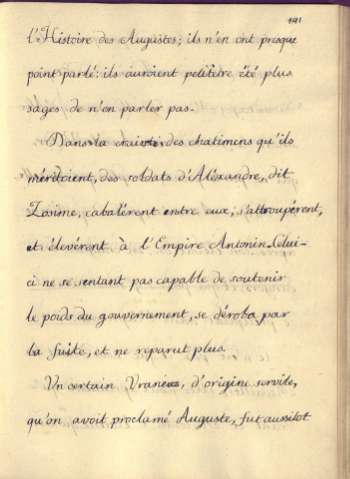 141
l'Histoire des Augustes; ils n'en ont presque
point parlé: ils auroient peutêtre été plus
sages de n'en parler pas.
Dans la crainte des chatimens qu'ils
méritoient, des soldats d'Aléxandre, dit
Zosime, cabalérent entre eux, s'attroupérent,
et élevérent à l'Empire Antonin. Celui-
ci ne se sentant pas capable de soutenir
le poids du gouvernement, se déroba par
la fuite, et ne reparut plus
Un certain Uranes, d'origine servile,
qu'on avoit proclamé Auguste, fut aussitot